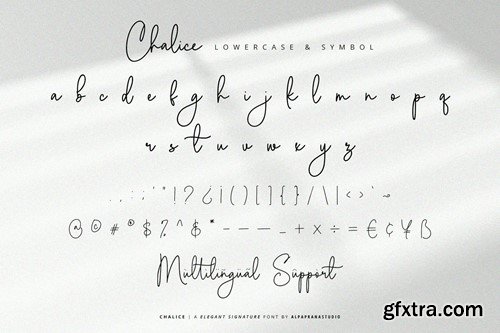 Chalice LOWERCASE & SYMBOL
a b c d e f g h i j k l m n o p q
r s t u v w x y z
. , : ; ' " ! ? ¿ ¡ ( ) [ ] { } / \ | < > ` ~
@ © # ® $ % ^ $ * - — — _ + × ÷ = € ¢ ¥ ß
Mültilingüäl Süppört
CHALICE | A ELEGANT SIGNATURE FONT BY ALPAPRANASTUDIO
gfxtra.com